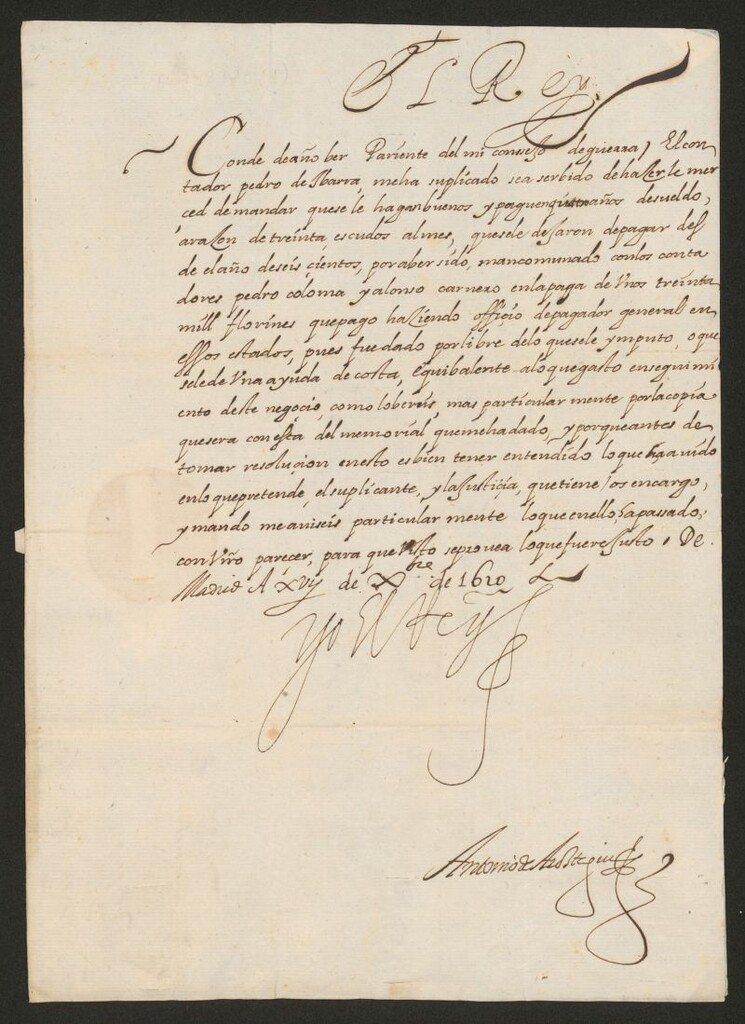 El Rey
Conde de año ber Pariente del mi consejo de guerra, El con
tador pedro de Ibarra, meha suplicado sea serbido de hazer le mer
ced de mandar quese le hagan buenos y paguen años desueldo,
a razon de treinta escudos almes, quesele dejaron depagar des
de el año deseis çientos, por aber sido, mancomunado con los conta
dores pedro coloma y alonso carnero en la paga de Unos treinta
mill florines que pago haziendo offiçio depagador general en
essos estados, pues fue dado por libre delo quesele ymputo, o que
sele de Una ayuda de costa, equibalente alo que gasto en segui mi
ento deste negoçio, como lo bereis, mas particular mente por la copia
que sera con esta del memorial que meha dado, y porque antes de
tomar resoluçion en esto es bien tener entendido lo que ha avido
en lo que pretende, el suplicante, y la Justiçia, que tiene, os encargo,
y mando me aviseis particular mente lo que en ello ha passado,
con Vrõ pareçer, para que Visto se provea lo que fuere Justo, De
Madrid A xvij de Xbre de 1610
Yo El Rey
Antonio de Arostegui